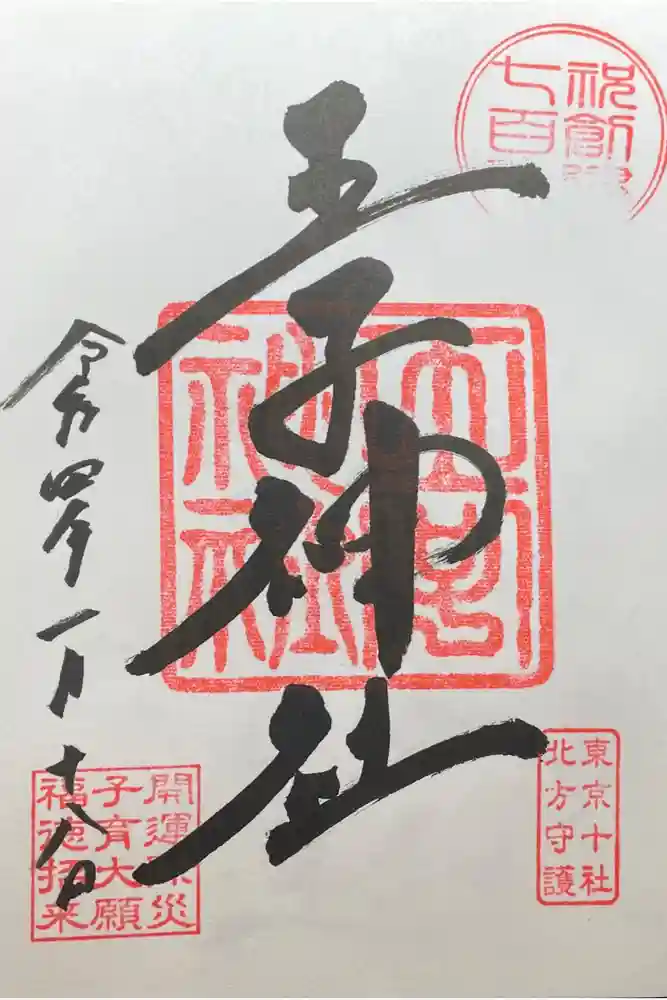 祝創
七百
東京十社
北方守護
王子神社
令和四年一月十八日
開運除災
子育大願
福徳招来